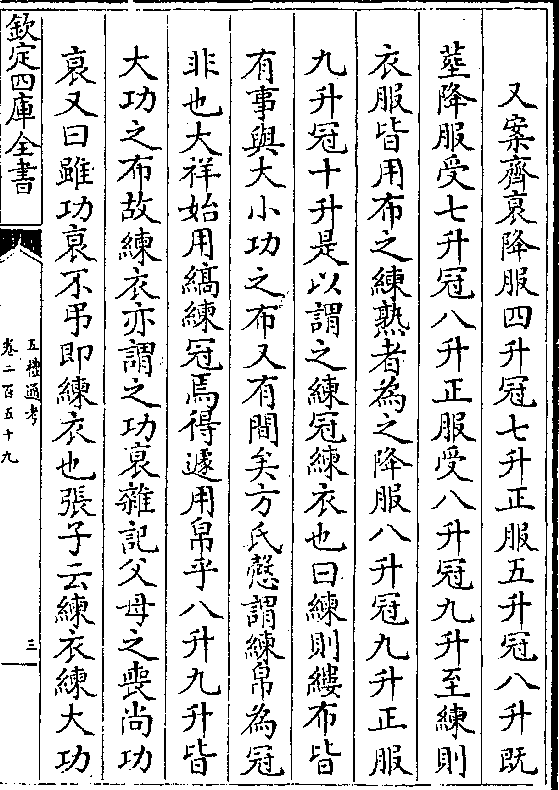 又案齊衰降服四升冠七升正服五升冠八升既
塟降服受七升冠八升正服受八升冠九升至練則
衣服皆用布之練熟者為之降服八升冠九升正服
九升冠十升是以謂之練冠練衣也曰練則縷布皆
有事與大小功之布又有間矣方氏慤謂練帛為冠
非也大祥始用縞練冠焉得遽用帛乎八升九升皆
大功之布故練衣亦謂之功衰雜記父母之喪尚功
衰又曰雖功衰不弔即練衣也張子云練衣練大功
欽定四庫全書
五禮通考
卷二百五十九
三